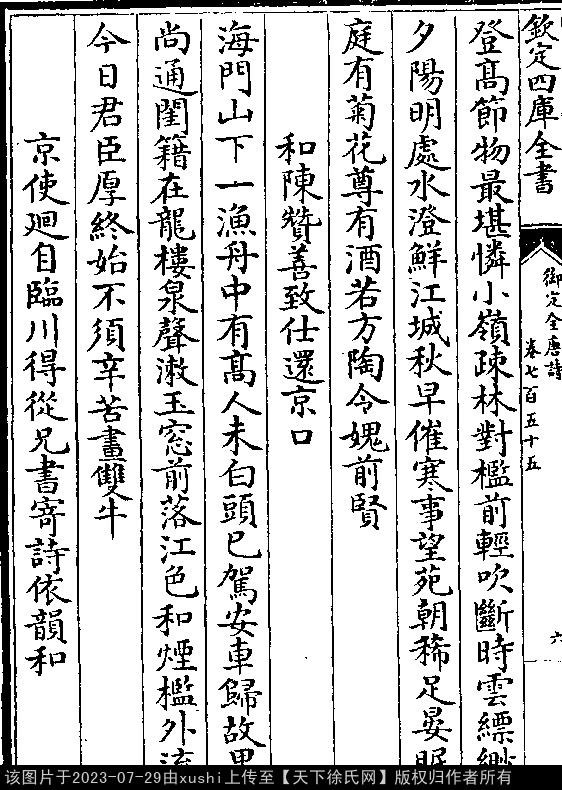 欽定四庫全書
御定全唐詩
卷七百五十五
六
登髙節物最堪憐小嶺疎林對檻前輕吹斷時雲縹緲
夕陽明處水澄鮮江城秋早催寒事望苑朝稀足晏眠
庭有菊花尊有酒若方陶令媿前賢
和陳贊善致仕還京口
海門山下一漁舟中有髙人未白頭已駕安車歸故里
尚通閨籍在龍樓泉聲漱玉窓前落江色和煙檻外流
今日君臣厚終始不須辛苦畫雙牛
京使廻自臨川得從兄書寄詩依韻和
该图片于2023-07-29由xushi上传至【天下徐氏网】版权归作者所有